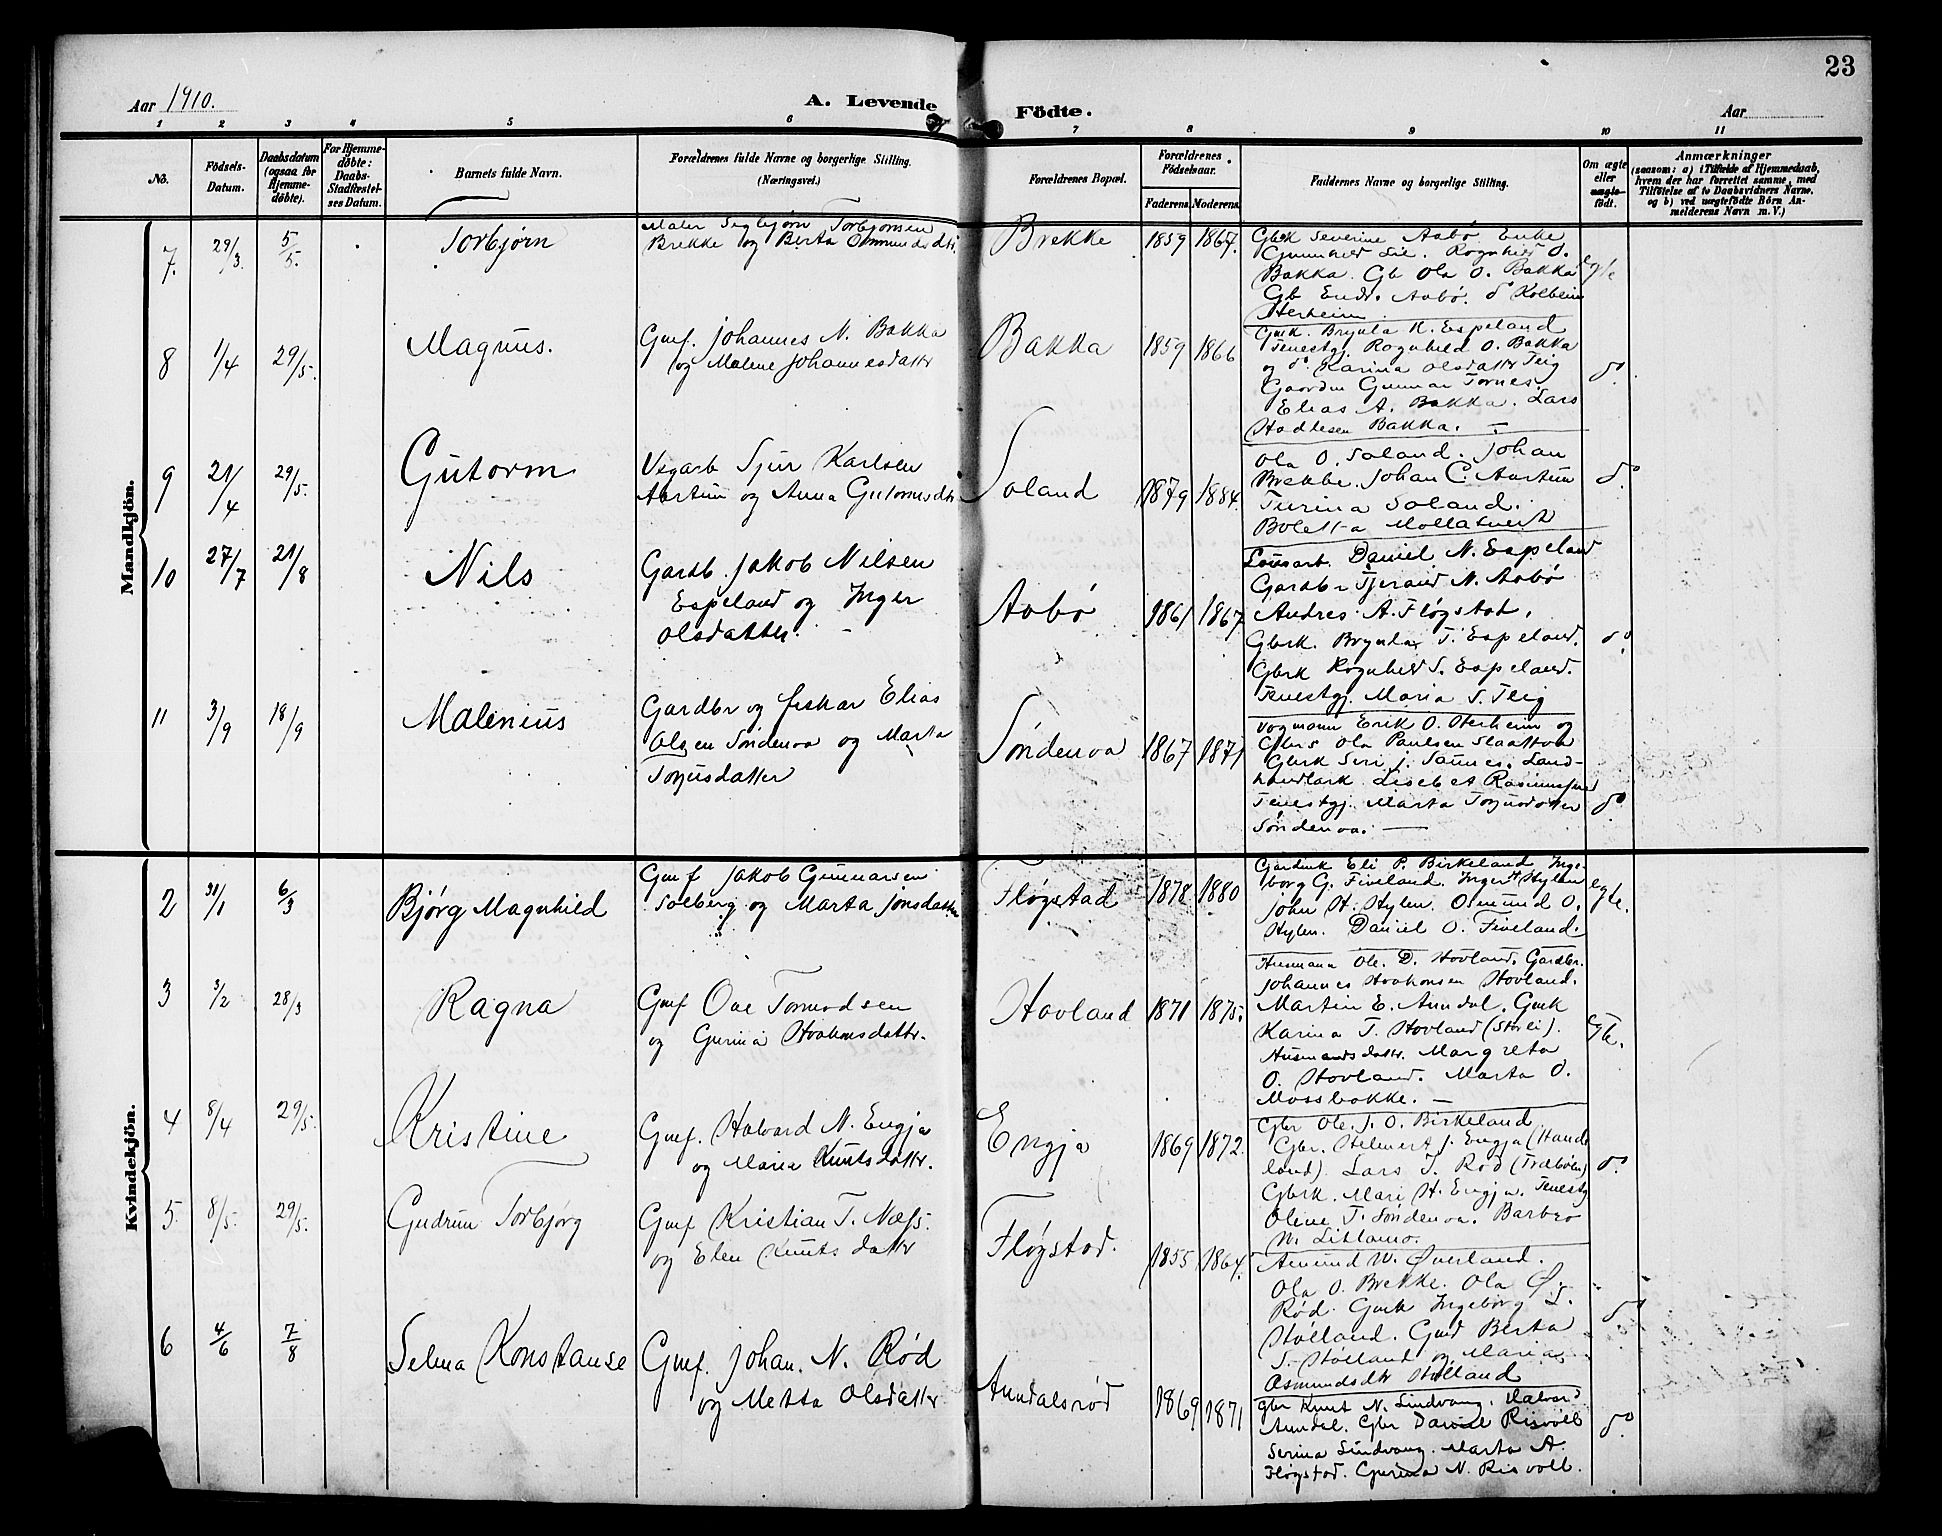 23
Aar 1910.
A. Levende Födte.
Aar
1 2 3 4 5 6 7 8 9 10 11
No.
Födsels-Datum.
Daabsdatum (ogsaa for Hjemme-döbte).
For Hjemme-döbte: Daabs-Stadfæstel-ses Datum.
Barnets fulde Navn.
Forældrenes fulde Navne og borgerlige Stilling. (Næringsvei.)
Forældrenes Bopæl.
Forældrenes Födselsaar.
Faderens. Moderens.
Faddernes Navne og borgerlige Stilling.
Om ægte eller uægte födt.
Anmærkninger
(saasom: a) i Tilfælde af Hjemmedaab,
hvem der har forrettet samme, med
Tilföielse af to Daabsvidners Navne,
og b) ved uægtefödte Börn An-
melderens Navn m. V.)
Mandkjön.
7. 29/3 5/5. Torbjørn
Maler Segbjørn Torbjørnsen
Brekke og Berta Ommundsdtr
Brekke 1859 1867.
Gbrk Severine Aabø Enke
Gunnhild Lie. Rognhild O.
Bakka. Gb Ola O. Bakka
Gb Endr. Aabø. do Kolbein
Herheim
egte
8 1/4 29/5. Magnus.
Gmf. Johannes N. Bakka
og Malene Johannesdatter
Bakka 1859 1866
Gmk. Brynla K. Espeland
Tenestgj. Rognhild O. Bakka
og do Karina Olsdatter Teig
Gaardm Gunnar Tornes.
Elias A. Bakka. Lars
Hadlesen Bakka.
do
9 21/4 29/5. Gutorm
Vegarb Sjur Karlsen
Aartun og Anna Gutormsdtr
Soland 1879 1884.
Ola O. Soland. Johan
Brekke. Johan C. Aartun
Turina Soland.
Boletta Mollatveit
do
10 27/7 21/8 Nils
Gardb. Jakob Nilsen
Espeland og Inger
Olsdatter.
Aabø 1861 1867
Lausarb. Daniel N. Espeland
Gardbr Tjerand N. Aabø
Andres A. Fløgstad.
Gbrk. Brynla T. Espeland.
Gbrk Rognhild S. Espeland.
Tenestgj. Maria S. Teig
do
11 3/9 18/9 Malenius
Gardbr og fiskar Elias
Olsen Søndenaa og Marta
Torgusdatter
Søndenaa 1867 1871
Vogmann Erik O. Herheim og
Gbrs Ola Paulsen Slaattaa
Gbrk Seri J. Saunes. Land-
handlark. Lisebet Rasmussen
Tenestgj. Marta Torgusdotter
Søndenaa.
do
Kvindekjön.
2 31/1 6/3 Bjørg Magnhild
Gmf Jakob Gunnarsen
Solberg og Marta Jonsdatter
Fløgstad 1878 1880
Gardmk Eli P. Birkeland Inge-
borg G. Fiveland. Inger H Hylen
John H. Hylen. Osmund O.
Hylen. Daniel O. Fiveland.
egte.
3 3/2 28/3 Ragna
Gmf Ove Tormodsen
og Gurina Haakonsdatter.
Hovland 1871 1875.
Husmann Ole. D. Hovland. Gardbr.
Johannes Haakonsen Hovland.
Martin E. Amdal. Gmk
Karina T. Hovland
Husmandsdatter. Margreta
O. Hovland. Marta O.
Mossbakke.
egte.
4 8/4 29/5. Kristine
Gmf. Halvard N. Engja
og Maria Knutsdatter.
Engja 1869 1872.
Gbr Ole. J. O. Birkeland
Gbr. Helmert J. Engja (Hande
land). Lars T. Rød
Gbrk. Mari H. Engja. Tenestg
Oline T. Søndenaa. Barbro
N. Litlamo.
do
5. 8/5. 29/5. Gudrun Torbjørg
Gmf Kristian T. Næss.
og Elen Knutsdatter
Fløgstad. 1855 1864.
Amund W. Øverland.
Ola O. Brekke. Ola Ø.
Rød. Gmk Ingeborg S.
Hølland. Gmd Berta
S. Hølland og Maria
Osmundsdtr Hølland
do
6 4/6 7/8 Selma Konstanse
Gmf. Johan. N. Rød
og Metta Olsdatter
Amdalsrød 1869 1871
gbr Knut N. Lindvang. Halvard
Amdal. Gbr Daniel Risvoll
Serina Lindvang. Marta A.
Fløgstad. Gurina N. Risvoll.
do